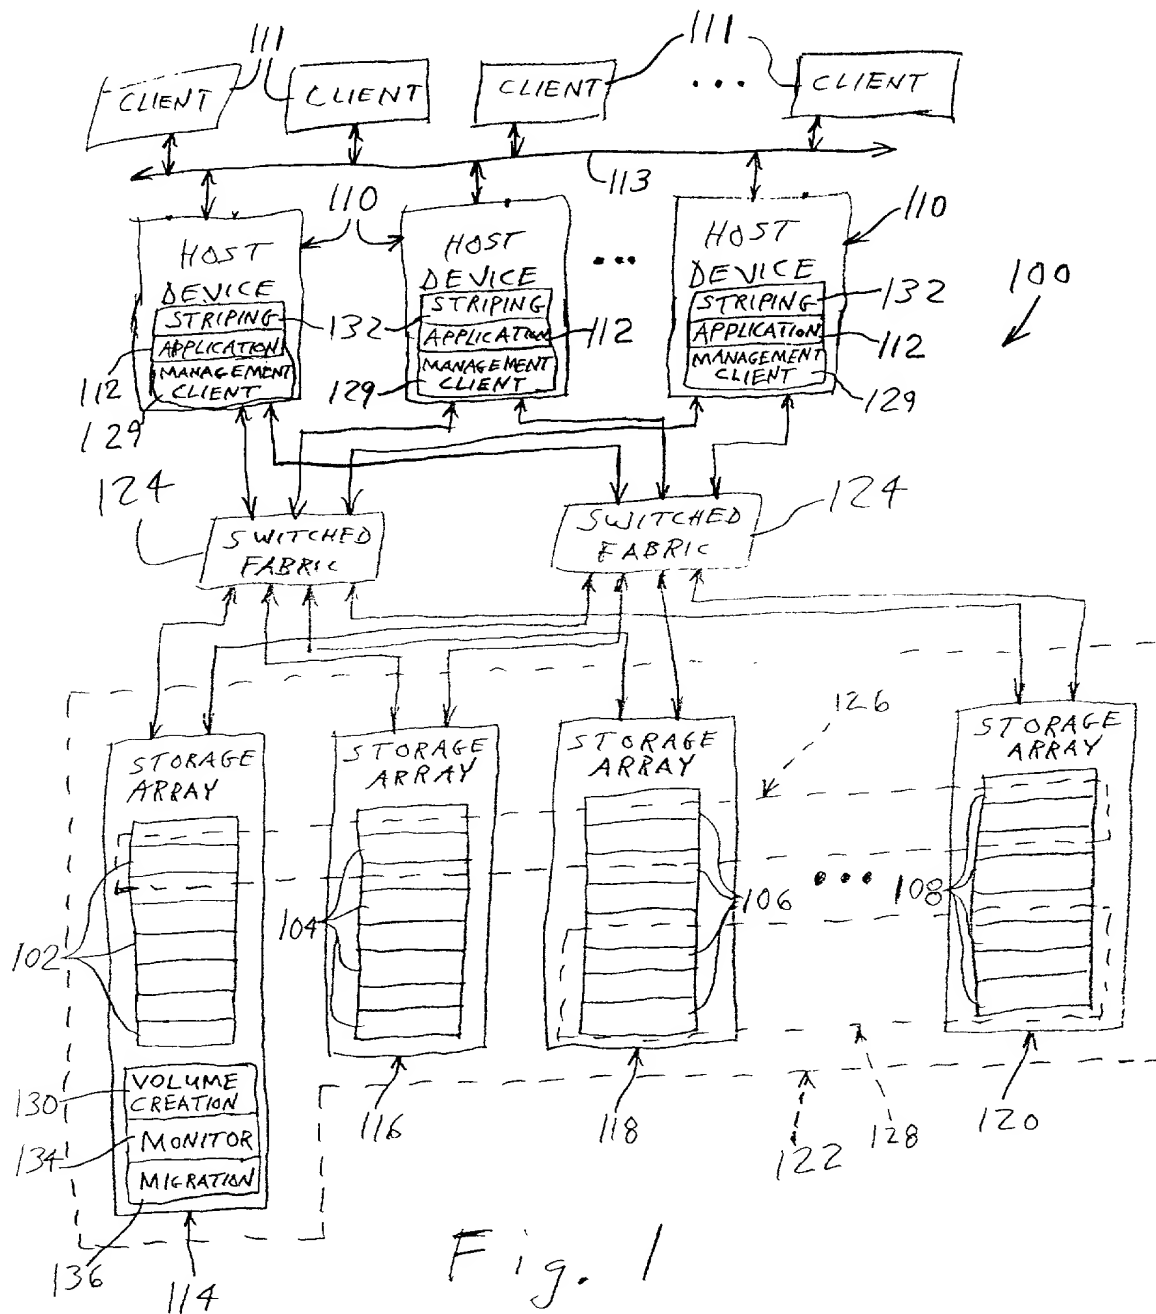 111
111
CLIENT
CLIENT
CLIENT
CLIENT
113
110
110
HOST
DEVICE
STRIPING
APPLICATION
MANAGEMENT
CLIENT
HOST
DEVICE
STRIPING
APPLICATION
MANAGEMENT
CLIENT
HOST
DEVICE
STRIPING
APPLICATION
MANAGEMENT
CLIENT
100
132
132
112
112
112
129
129
129
124
124
SWITCHED
FABRIC
SWITCHED
FABRIC
126
STORAGE
ARRAY
STORAGE
ARRAY
STORAGE
ARRAY
STORAGE
ARRAY
102
104
106
108
130
VOLUME
CREATION
134
MONITOR
MIGRATION
136
114
116
118
122
128
120
Fig. 1